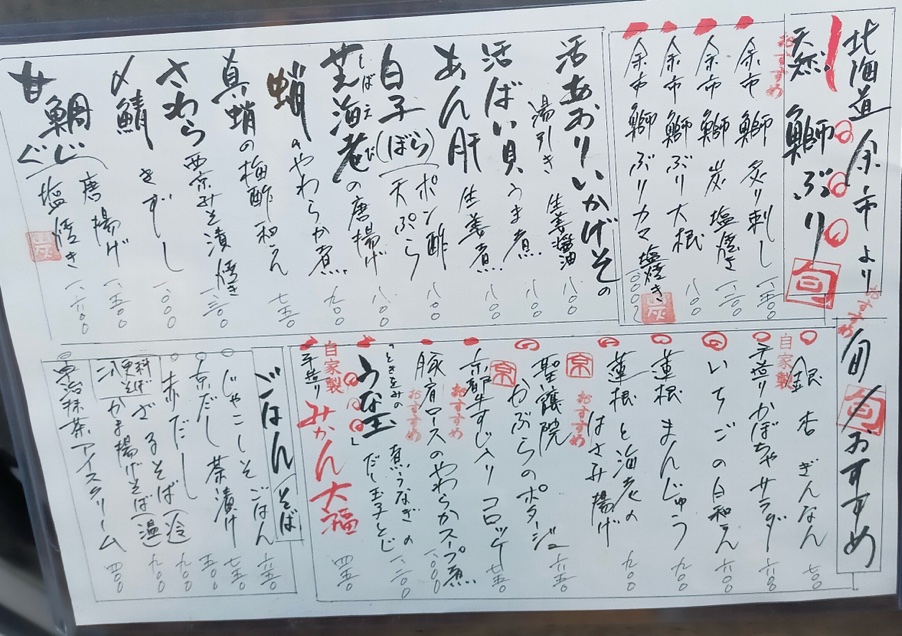 北海道 余市より
天然 鰤 ぶり
旬
おすすめ
余市 鰤 炙り刺し
余市 鰤 炭 塩焼き
余市 鰤 ぶり大根 八〇〇
余市 鰤 ぶりカマ 塩焼き
炭
活あおりいかげその
湯引き 生姜醤油 八〇〇
活ばい貝 うま煮 八〇〇
あん肝 生姜煮 八〇〇
白子(ぼら) ポン酢 八〇〇
天ぷら 八〇〇
芝海老の唐揚げ 九〇〇
しばえび
蛸のやわらか煮
真蛸の梅酢和え 七五〇
さわら 西京みそ漬焼き
〆鯖 きずし 一、〇〇〇
甘鯛 唐揚げ
ぐじ 塩焼き
炭
旬/おすすめ
旬
おすすめ
銀杏 ぎんなん
自家製
手造りかぼちゃサラダ
いちごの白和え 六〇〇
蓮根まんじゅう 九〇〇
蓮根と海老の
はさみ揚げ 九〇〇
おすすめ
京
聖護院
かぶらのポタージュ 六五〇
京
京都牛すじ入りコロッケ 七五〇
おすすめ
豚肩ロースのやわらかスープ煮
おすすめ
うな玉
煮うなぎの
だし玉子とじ
自家製
手造り みかん大福 四五〇
ごはん/そば
じゃこしそごはん 六五〇
京だし 茶漬け 七五〇
赤だし
ざるそば(冷) 九〇〇
かま揚げそば(温) 九〇〇
宇治抹茶アイスクリーム 四〇〇